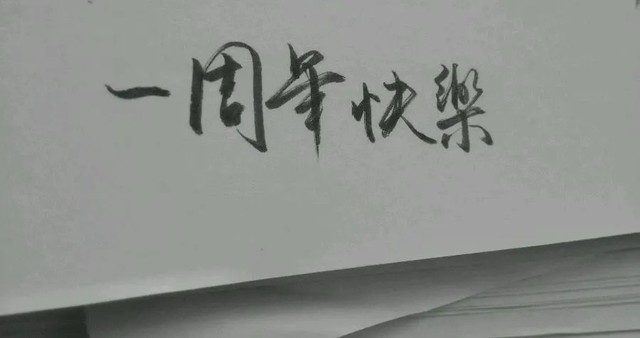 一周年快樂